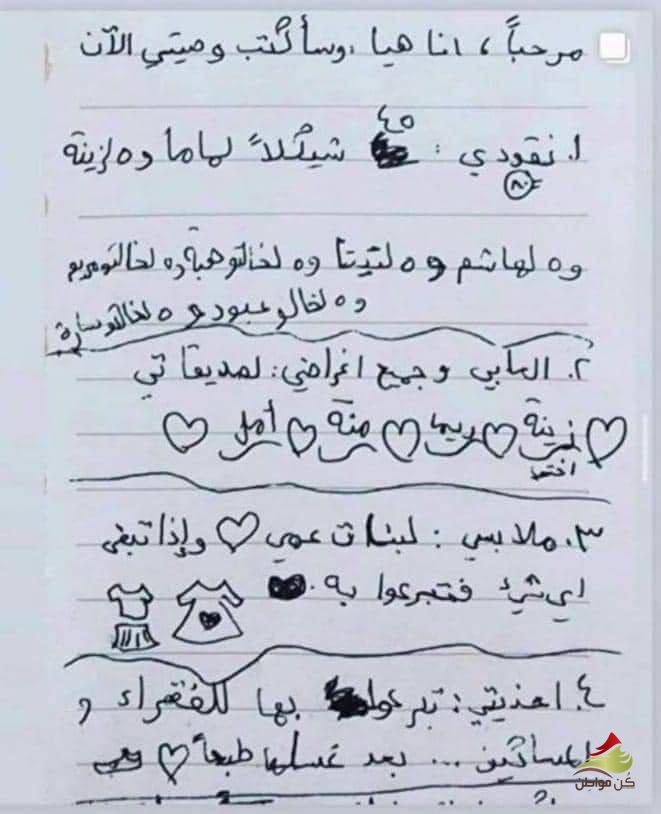 مرحباً، انا هيا، وسأكتب وصيتي الآن
١. نقودي: ٤٥ شيكلاً لماما و٥ لزينة
٨٠
و٥ لهاشم و٥ لتيتا و٥ لخالتو هبة و٥ لخالتو مريم
و٥ لخالو عبود و٥ لخالتو سارة
٢. العابي وجميع اغراضي: لصديقاتي
زينة ريما منة أمل
اختي
٣. ملابسي: لبنات عمي وإذا تبقى
اي شيء فتبرعوا به.
٤. احذيتي: تبرعوا بها للفقراء و
المساكين... بعد غسلها طبعاً
كُن مواطن